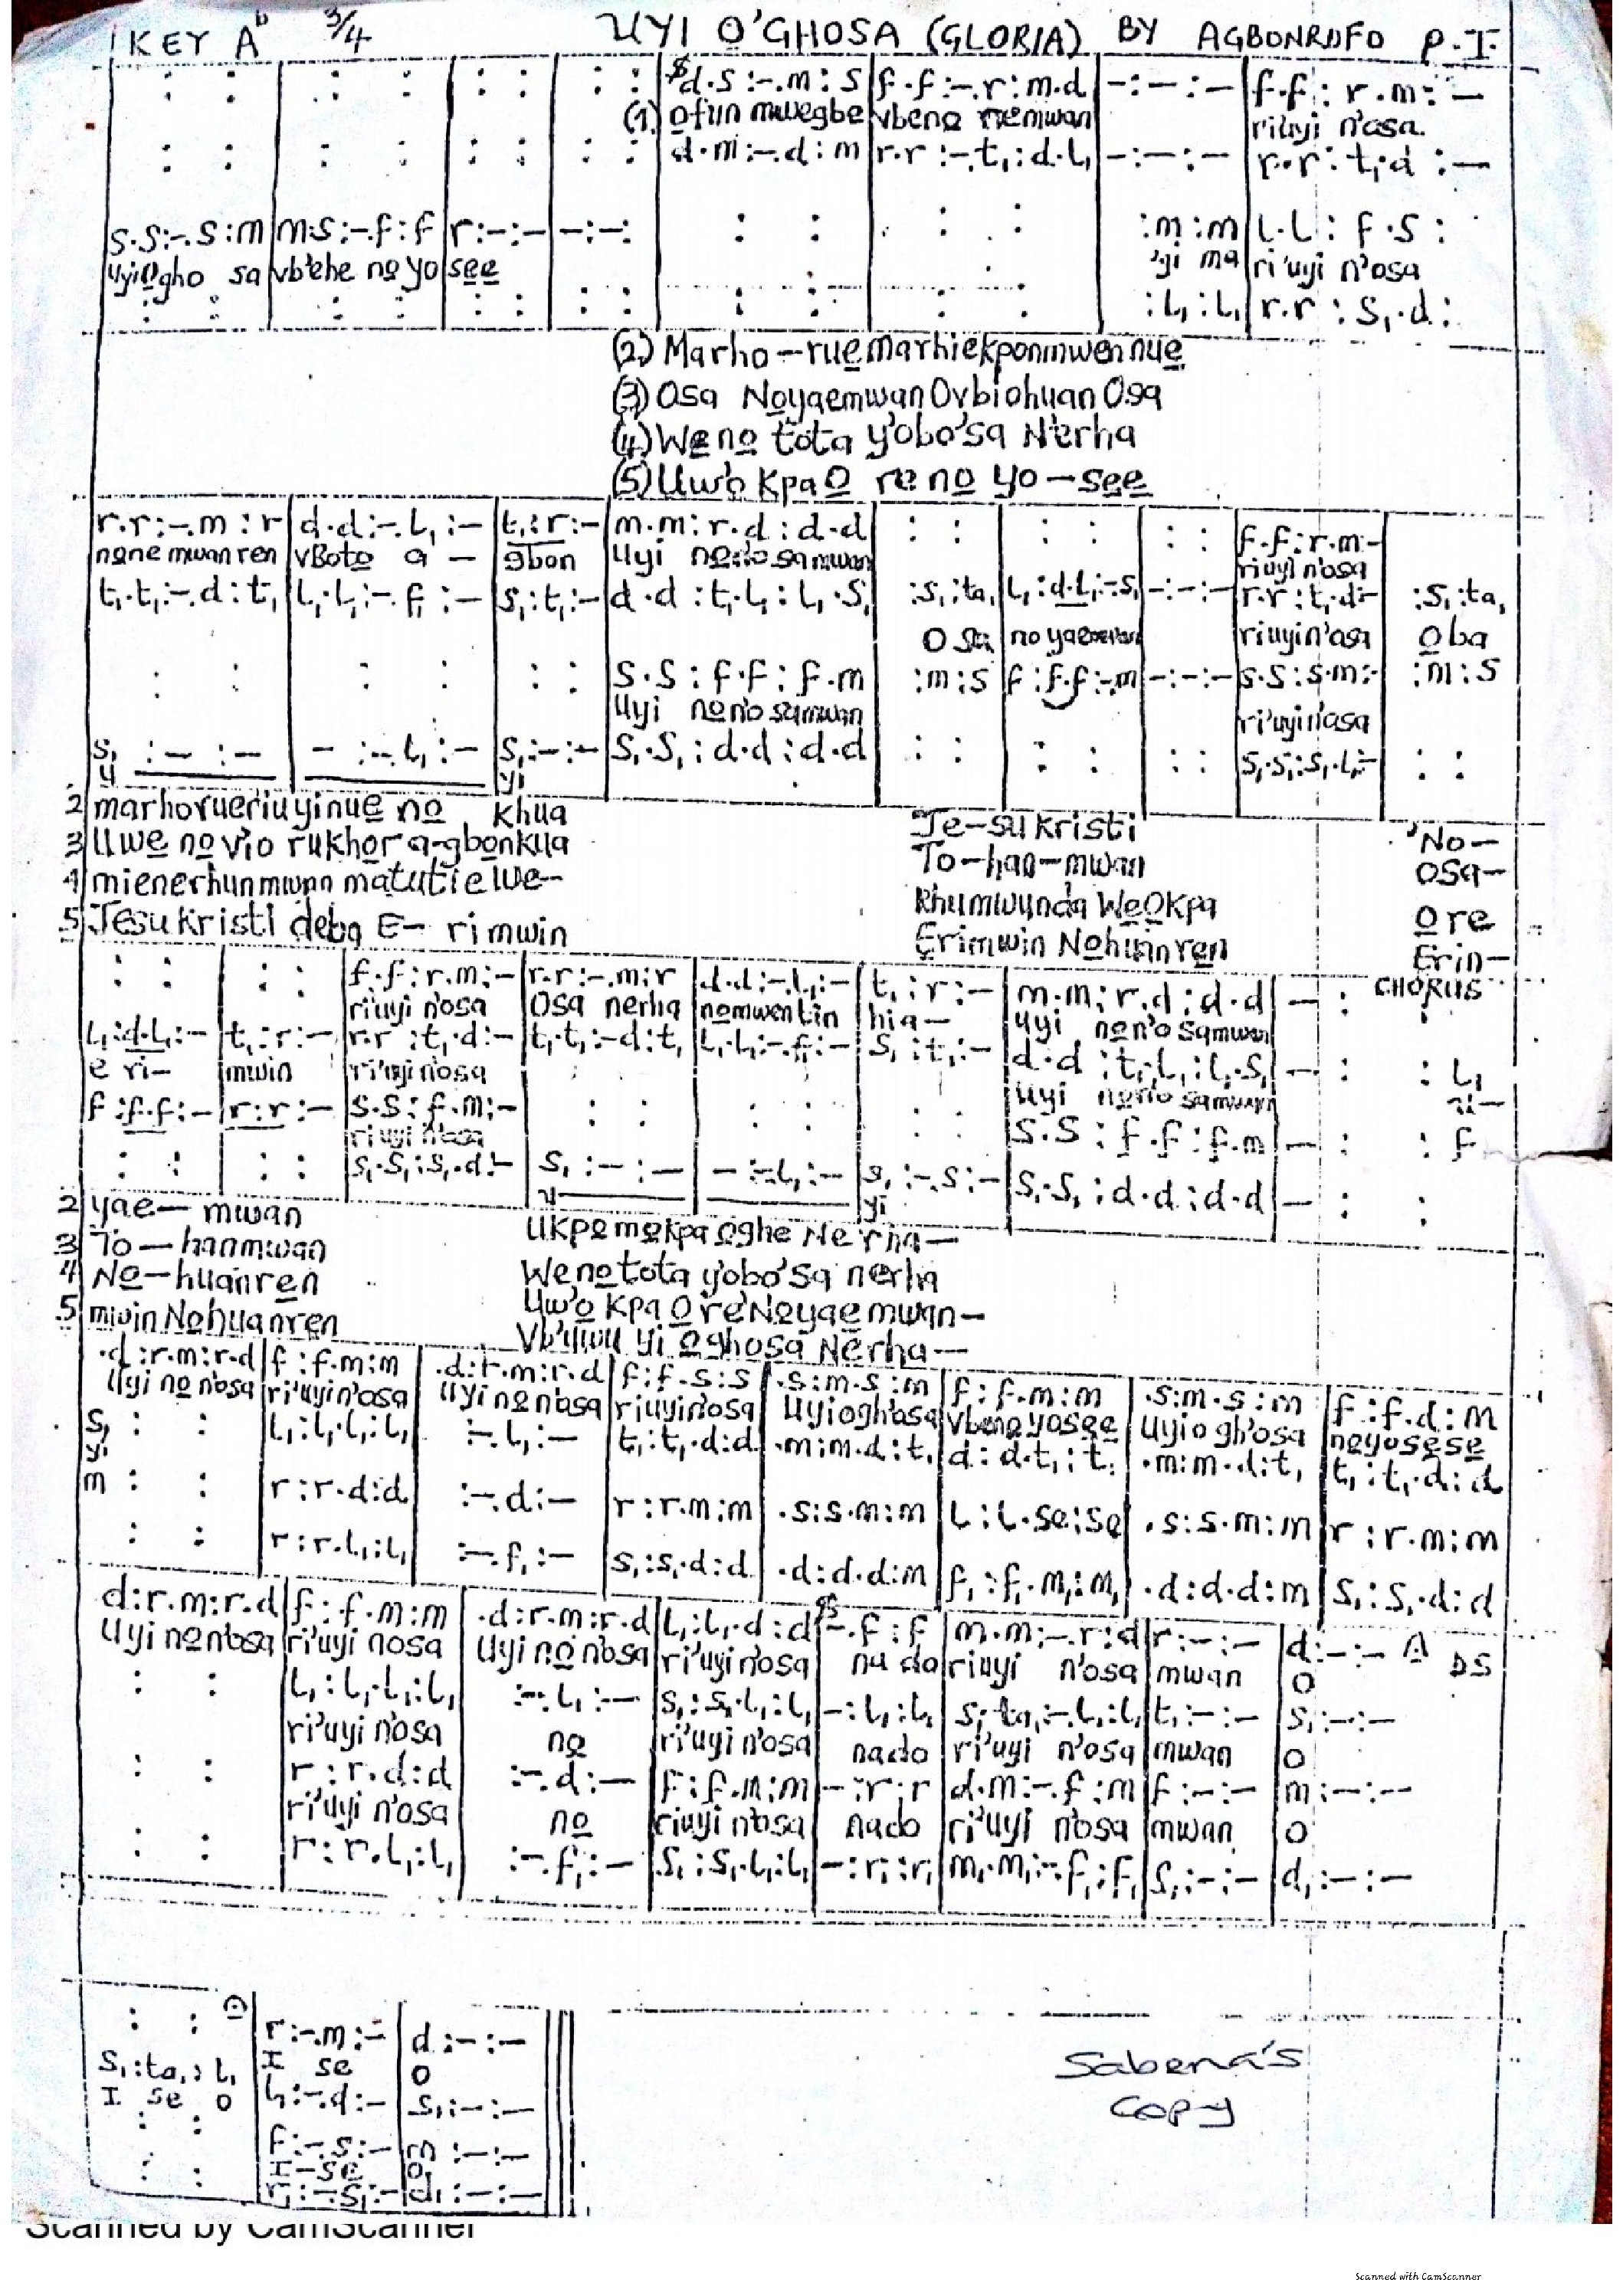 KEY Aᵇ 3/4 UYI O̲'GHOSA (GLORIA) BY AGBONROFO P.I.
d.s :-.m : s | f.f :-.r : m.d | - : - : - | f.f : r.m : -
(1) o̲fun mwegbe vbeno̲ riemwan riuyi n'osa.
d.m :-.d : m | r.r :-.t₁ : d.l₁ | - : - : - | r.r : t₁.d : -
s.s :-.s : m | m.s :-.f : f | r : - : - | - : - : | : m : m | l.l : f.s :
Uyio̲gho sa vb'ehe no̲ yo se̲e̲ 'yi ma ri'uyi n'osa
: l₁ : l₁ | r.r : s₁.d :
(2) Marho-rue̲marhiekponmwennue̲
(3) Osa No̲yaemwanOvbiohuanOsa
(4) We̲no̲ tota y'obo'sa N'erha
(5) Uw'o̲ kpa O̲ re no̲ yo-se̲e̲
r.r :-.m : r | d.d :-.l₁ : - | t₁ : r : - | m.m : r.d : d.d | : : | : : | : : | f.f : r.m : -
none mwan ren vBoto̲ a - gbon Uyi no̲n'osamwan riuyi n'osa
t₁.t₁ :-.d : t₁ | l₁.l₁ :-.f₁ : - | s₁ : t₁ : - | d.d : t₁.l₁ : l₁.s₁ | : s₁ : ta₁ | l₁ : d.l₁ :-.s₁ | - : - : - | r.r : t₁.d : - | : s₁ : ta₁
O sa no yaemwan riuyin'osa O̲ba
s.s : f.f : f.m | : m : s | f : f.f :-.m | - : - : - | s.s : s.m : - | : m : s
Uyi no̲n'o samwan ri'uyin'osa
s₁ : - : - | - :-.l₁ : - | s₁ : - : - | s₁.s₁ : d.d : d.d | : : | : : | : : | s₁.s₁ : s₁.l₁ : - | : :
U yi
2 marhorueriuyinue̲ no̲ khua Je-su kristi 'No-
3 Uwe̲ no̲ v'io rukho̲r a-gbo̲nkua To-han-mwan OSa-
4 mienerhunmwun matutiewe- Rhumwunda We̲O̲kpa O̲ re
5 Jesu kristi deba E- rimwin Erimwin No̲huanre̲n Erin-
CHORUS
: : | : : | f.f : r.m : - | r.r :-.m : r | d.d :-.l₁ : - | t₁ : r : - | m.m : r.d : d.d | - : :
riuyi n'osa Osa nerha no̲mwentin hia- Uyi no̲n'o samwan
l₁ : d.l₁ : - | t₁ : r : - | r.r : t₁.d : - | t₁.t₁ :-.d : t₁ | l₁.l₁ :-.f₁ : - | s₁ : t₁ : - | d.d : t₁.l₁ : l₁.s₁ | - : : l₁
e ri- mwin ri'uyi n'osa Uyi no̲n'o samwan
f : f.f : - | r : r : - | s.s : f.m : - | : : | : : | : : | s.s : f.f : f.m | - : : f
riuyi n'osa
: : | : : | s₁.s₁ : s₁.d : - | s₁ : - : - | - :-.l₁ : - | s₁ :-.s : - | s₁.s₁ : d.d : d.d | - : :
U yi
2 yae- mwan Ukpo̲mo̲kpa o̲ghe Ne'rha-
3 To- hanmwan We̲no̲tota y'obo'sa nerha
4 No̲-huanre̲n Uw'o̲ kpa O̲ re'No̲yae̲mwan-
5 mwin No̲huanre̲n Vb'uwu yi o̲ghosa Nerha-
.d : r.m : r.d | f : f.m : m | .d : r.m : r.d | f : f.s : s | .s : m.s : m | f : f.m : m | .s : m.s : m | f : f.d : m
Uyi no̲ n'osa ri'uyin'osa Uyi no̲n'osa riuyin'osa Uyiogh'osa vbeno̲yose̲e̲ Uyio gh'osa no̲yose̲se̲
s₁ : : | l₁ : l₁.l₁ : l₁ | :-.l₁ : - | t₁ : t₁.d : d | .m : m.d : t₁ | d : d.t₁ : t₁ | .m : m.d : t₁ | t₁ : t₁.d : d
yi
m : : | r : r.d : d | :-.d : - | r : r.m : m | .s : s.m : m | l : l.se : se | .s : s.m : m | r : r.m : m
: : | r : r.l₁ : l₁ | :-.f₁ : - | s₁ : s₁.d : d | .d : d.d : m | f₁ : f₁.m₁ : m₁ | .d : d.d : m | s₁ : s₁.d : d
d : r.m : r.d | f : f.m : m | .d : r.m : r.d | l₁ : l₁.d : d | -.f : f | m.m :-.r : d | r : - : - | d : - : - DS
Uyi no̲n'osa ri'uyi nosa Uyi no̲ n'osa ri'uyi n'osa na do riuyi n'osa mwan O
: : | l₁ : l₁.l₁ : l₁ | :-.l₁ : - | s₁ : s₁.l₁ : l₁ | - : l₁ : l₁ | s₁.ta₁ :-.l₁ : l₁ | t₁ : - : - | s₁ : - : -
ri'uyi n'osa no̲ ri'uyi n'osa nado ri'uyi n'osa mwan O
: : | r : r.d : d | :-.d : - | f : f.m : m | - : r : r | d.m :-.f : m | f : - : - | m : - : -
ri'uyi n'osa no̲ riuyi n'osa nado ri'uyi n'osa mwan O
: : | r : r.l₁ : l₁ | :-.f₁ : - | s₁ : s₁.l₁ : l₁ | - : r₁ : r₁ | m₁.m₁ :-.f₁ : f₁ | s₁ : - : - | d₁ : - : -
: : | r :-.m : - | d : - : -
I se O
s₁ : ta₁ : l₁ | l₁ :-.d : - | s₁ : - : -
I se O
: : | f :-.s : - | m : - : -
I-se O
: : | r₁ :-.s₁ : - | d₁ : - : -
Sabena's
Copy
Scanned by CamScanner
Scanned with CamScanner